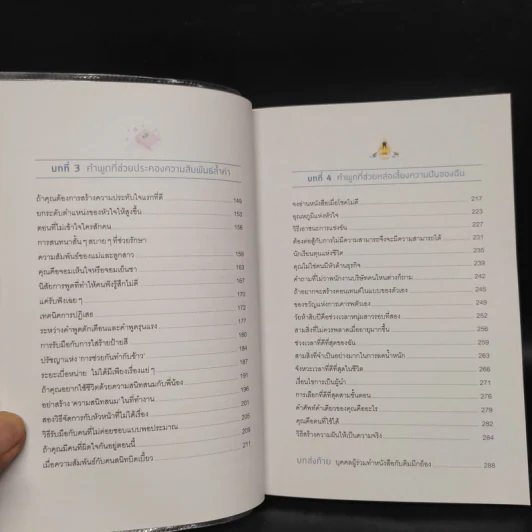 บทที่ 3 คำพูดที่ช่วยประคองความสัมพันธ์ล้ำค่า
ถ้าคุณต้องการสร้างความประทับใจแรกที่ดี 149
ยกระดับตำแหน่งของหัวใจให้สูงขึ้น 153
ตอนที่ไม่เข้าใจใครสักคน 156
การสนทนาสั้น ๆ สบาย ๆ ที่ช่วยรักษา
ความสัมพันธ์ของแม่และลูกสาว 159
คุณคือจอมเห็นใจหรือจอมเย็นชา 163
นิสัยการพูดที่ทำให้คนฟังรู้สึกไม่ดี 165
แค่รับฟังเฉย ๆ 170
เทคนิคการปฏิเสธ 172
ระหว่างคำพูดตักเตือนและคำพูดรุนแรง 175
การรับมือกับการใส่ร้ายป้ายสี 177
ปรัชญาแห่ง 'การช่วยกันทำกับข้าว' 180
ระยะเบื่อหน่าย ไม่ได้มีเพียงเรื่องแย่ ๆ 184
ถ้าคุณอยากใช้ชีวิตด้วยความสนิทสนมกับพี่น้อง 187
อย่าสร้าง 'ความสนิทสนม' ในที่ทำงาน 191
สองวิธีจัดการกับหัวหน้าที่ไม่ได้เรื่อง 196
วิธีรับมือกับคนที่ไม่ค่อยชอบแบบพอประมาณ 201
ถ้าคุณมีคนที่ผิดใจกันอยู่ตอนนี้ 205
เมื่อความสัมพันธ์กับคนสนิทบิดเบี้ยว 209
211
บทที่ 4 คำพูดที่ช่วยหล่อเลี้ยงความฝันของฉัน
จงอ่านหนังสือเมื่อโชคไม่ดี 217
อุณหภูมิแห่งหัวใจ 223
วิธีเอาชนะการแข่งขัน 227
ต้องต่อสู้กับการไม่มีความสามารถจึงจะมีความสามารถได้ 231
นักเรียนทุนแห่งชีวิต 235
คุณไม่ใช่คนมีหัวด้านธุรกิจ 239
คำถามที่ไม่ว่าพนักงานบริษัทคนไหนต่างก็ถาม 242
ถ้าอยากจะสร้างคอนเทนต์ในแบบของตัวเอง 245
ของขวัญแห่งการเคารพตัวเอง 248
วัยห้าสิบปีคือช่วงเวลาหนุ่มสาวรอบที่สอง 252
สามสิ่งที่ไม่ควรพลาดเมื่ออายุมากขึ้น 256
ช่วงเวลาที่ดีที่สุดของฉัน 259
สามสิ่งที่จำเป็นอย่างมากในการลดน้ำหนัก 261
จังหวะเวลาที่ดีที่สุดในชีวิต 266
เงื่อนไขการเป็นผู้นำ 271
การเลือกที่ดีที่สุดสามขั้นตอน 276
คำศัพท์คำเดียวของคุณคืออะไร 279
คุณคือคนที่ใช้ได้ 282
วิธีสร้างความฝันให้เป็นความจริง 284
บทส่งท้าย บุคคลผู้ร่วมทำหนังสือกับคิมมีกย็อง 288